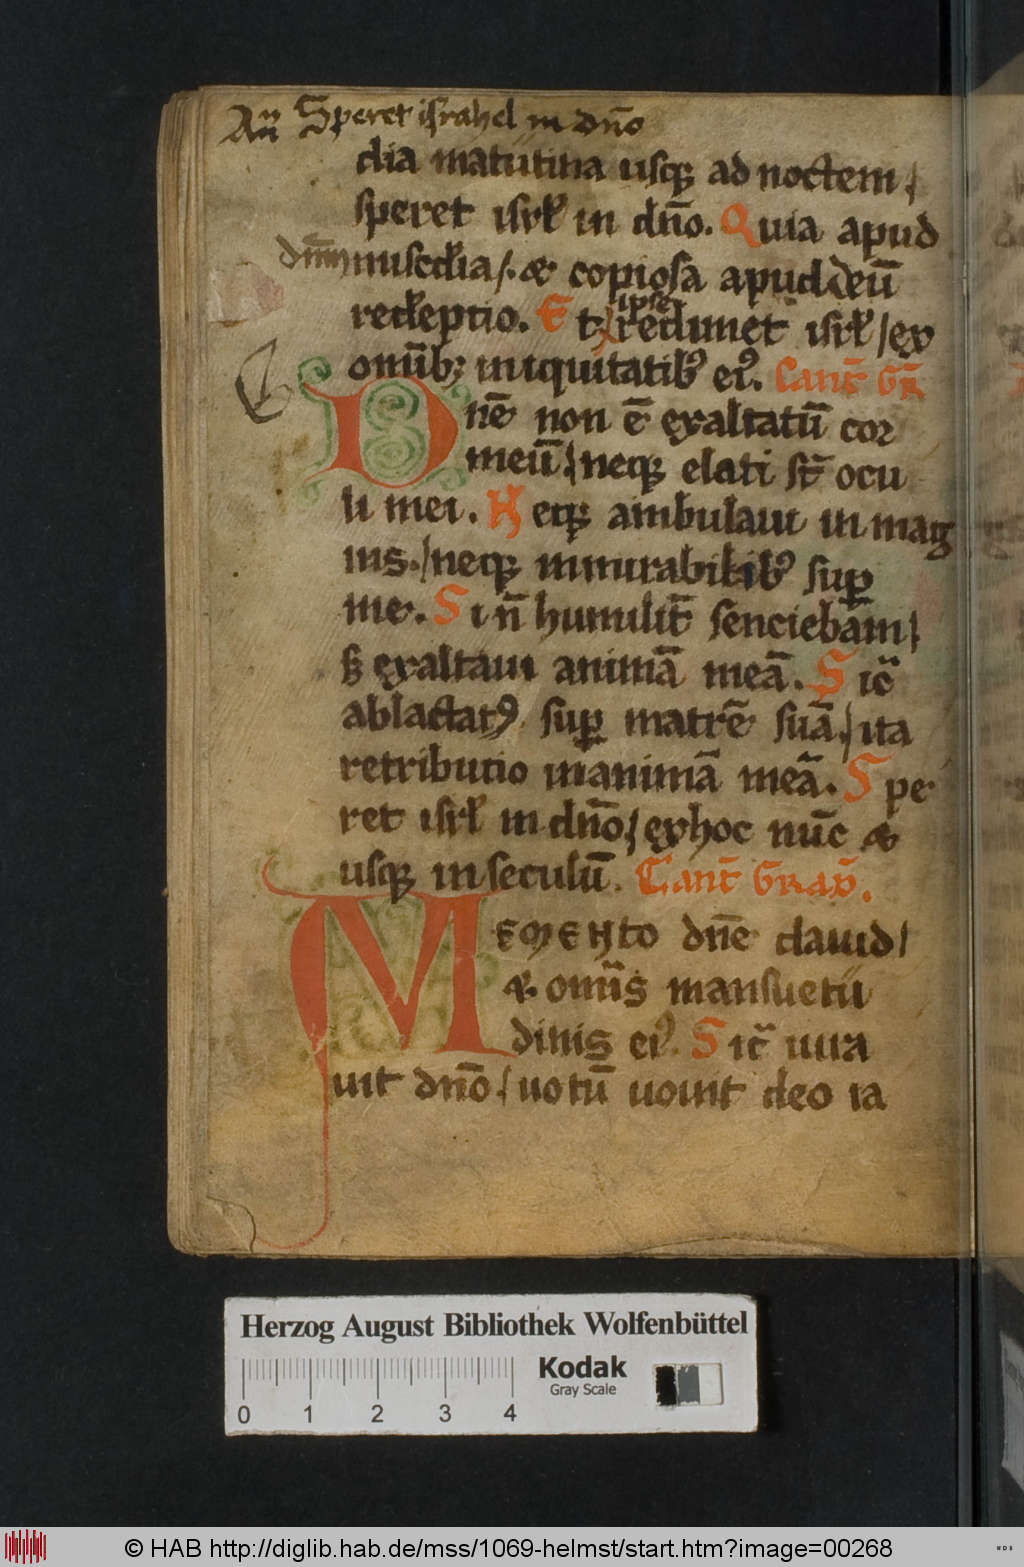 Añ Speret israhel in dño
dia matutina usq; ad noctem /
speret isrł in dño. Quia apud
dñm misc̄dia /. & copiosa apud deū
redēptio. Et ipse redimet isrł / ex
omīb; iniquitatib⁹ ei⁹. Cant̄ Gr̄
Dnē non ē exaltatū cor
meū / neq; elati st̄ ocu
li mei. Neq; ambulaui in mag
nis. / neq; in mirabilib⁹ sup
me. Si ñ humilit̄ senciebam /
sꝫ exaltaui animā meā. Sic̄
ablactat⁹ sup matrē suā. / ita
retributio in animā meā. Spe
ret isrł in dño / ex hoc nūc &
usq; in seculū. Cant̄ Grad̄.
Memento dñe dauid /
& omīs mansuetu
dinis ei⁹. Sic̄ iura
uit dño / uotū uouit deo ia
Herzog August Bibliothek Wolfenbüttel
Kodak
Gray Scale
0 1 2 3 4
© HAB http://diglib.hab.de/mss/1069-helmst/start.htm?image=00268